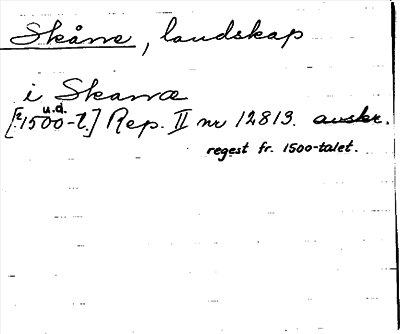 Skåne, landskap
i Skanæ
[?1500-t.] u.d. Rep. II nr 12813. avskr.
regest fr. 1500-talet.